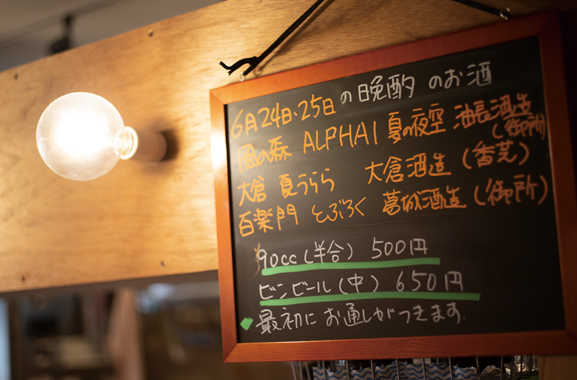 6月24日・25日の晩酌のお酒
風の森 ALPHA1 夏の夜空 油長酒造
(御所)
大倉 夏うらら 大倉酒造(香芝)
百楽門 どぶろく 葛城酒造(御所)
90cc(半合) 500円
ビンビール(中) 650円
最初にお通しがつきます.